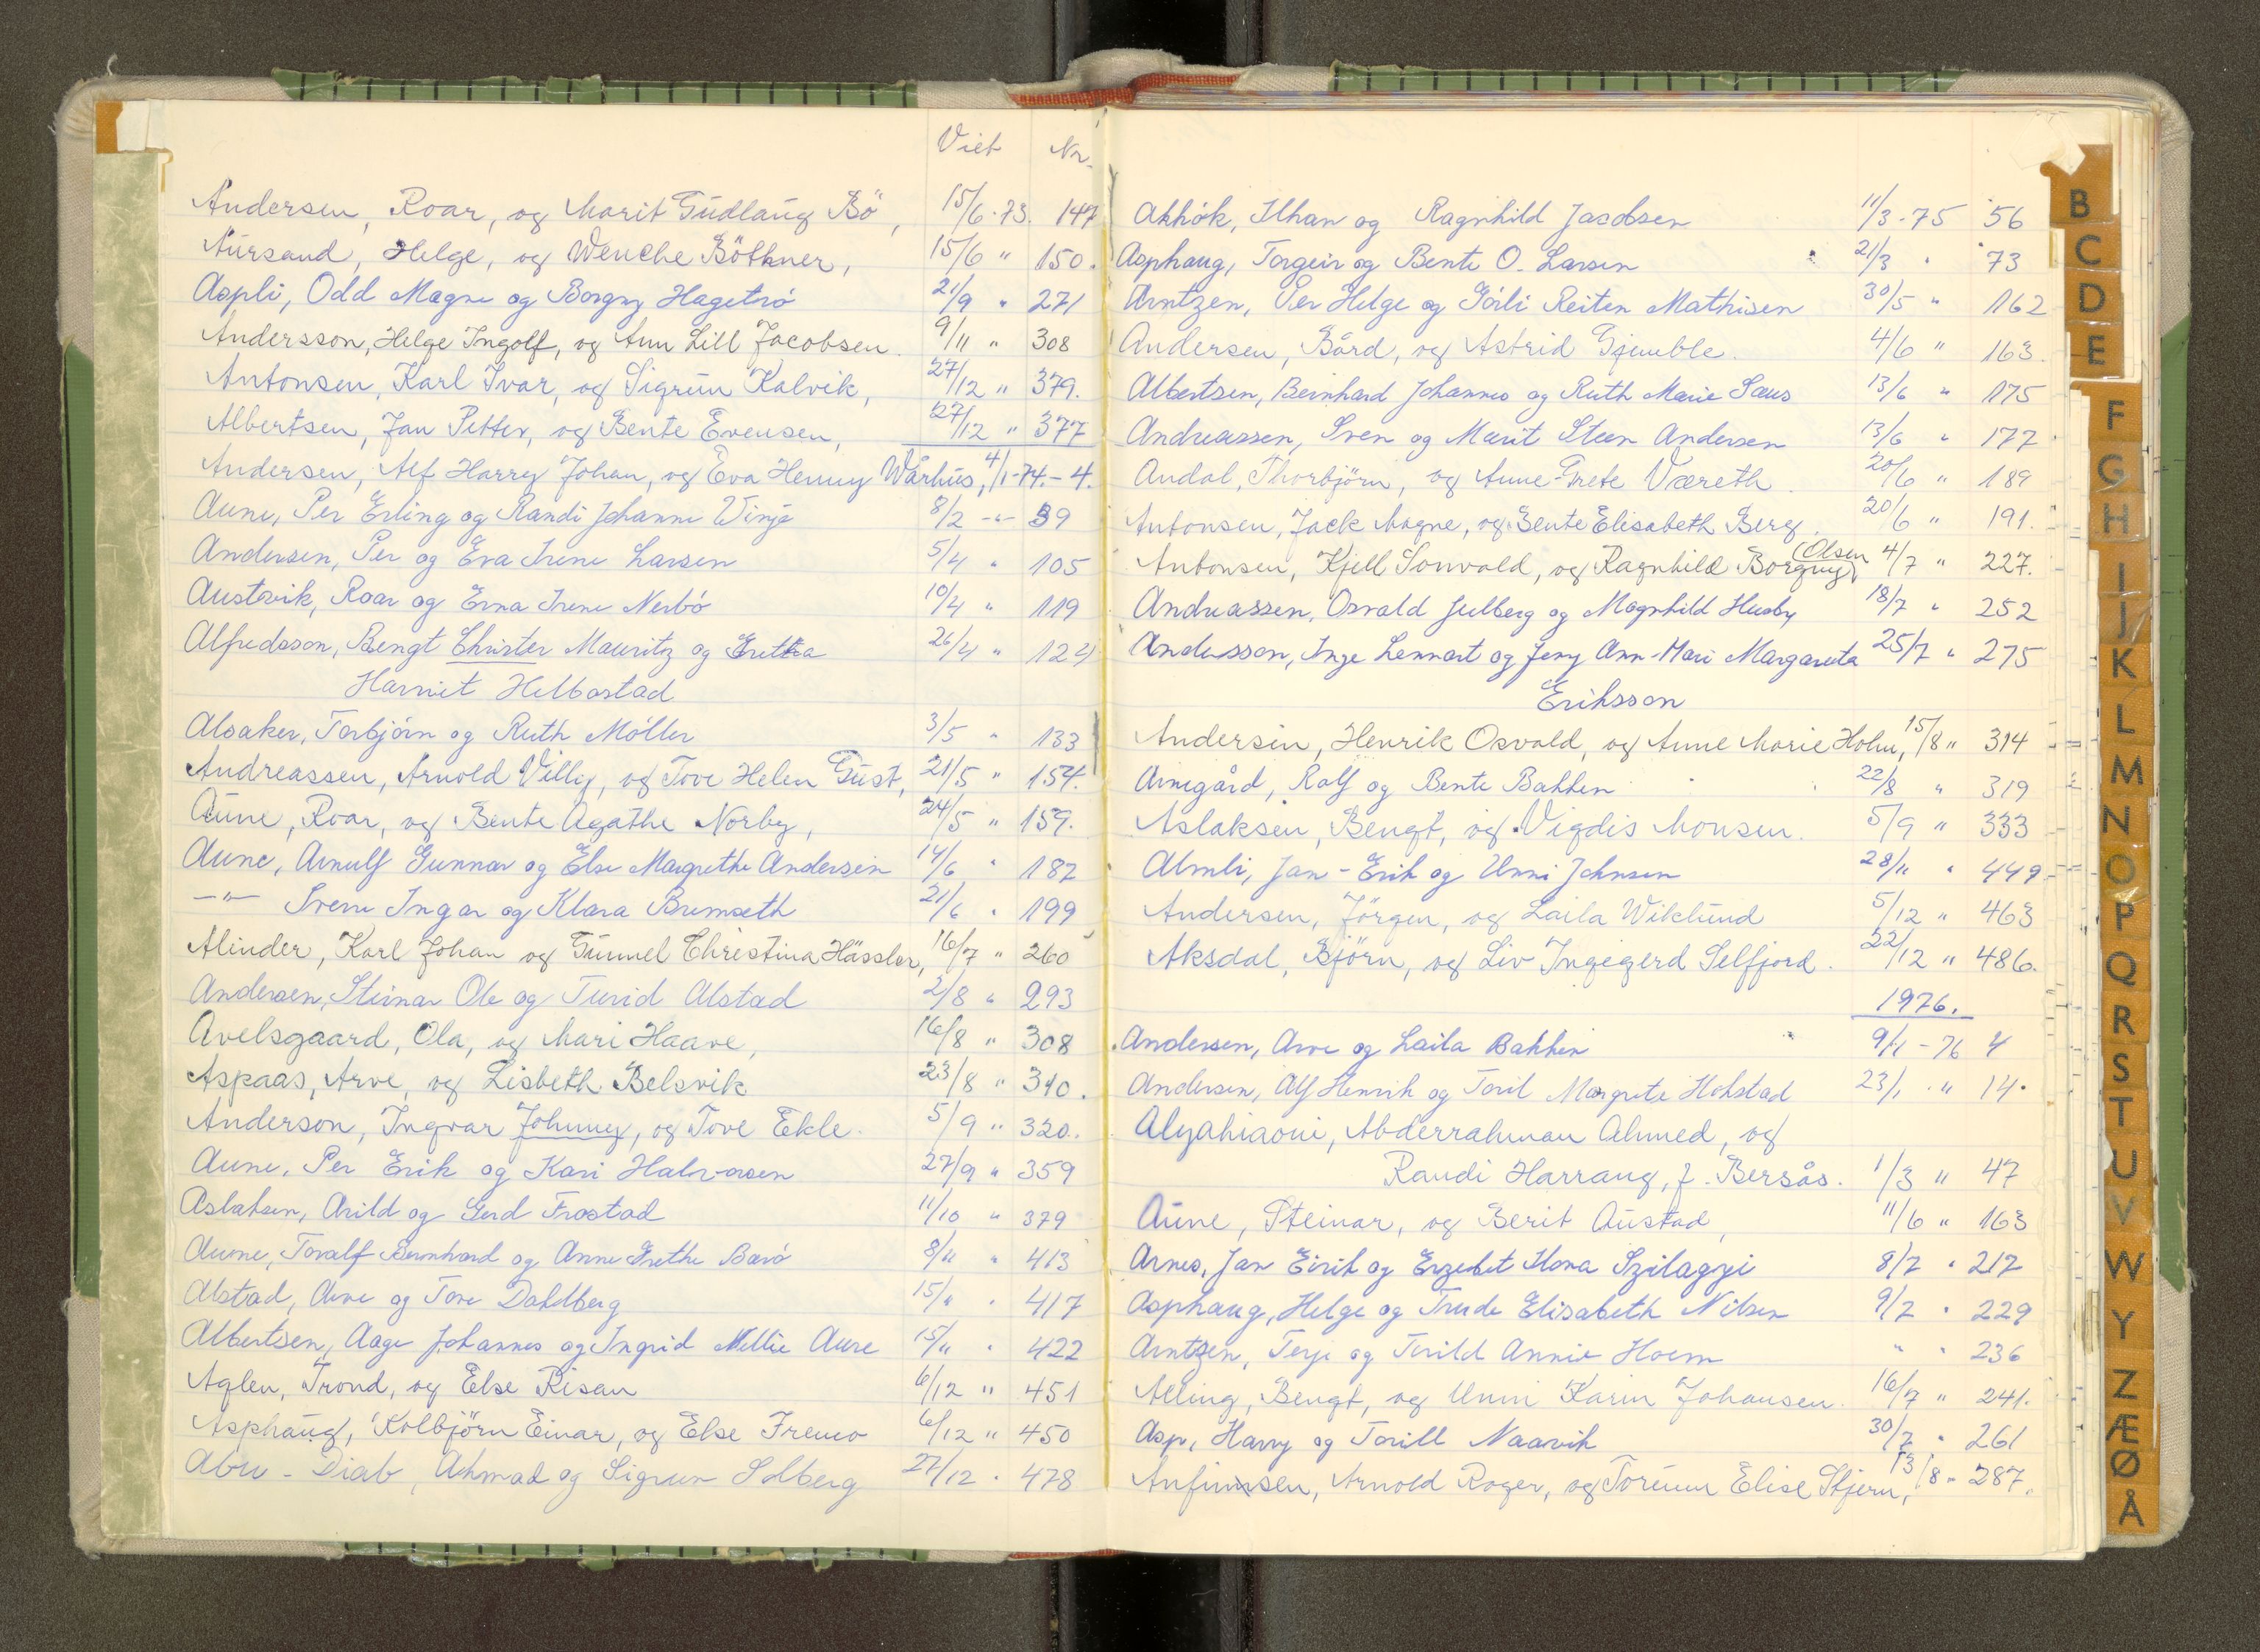 Viet Nr.
Andersen, Roar, og Marit Gudlaug Bö, 15/6-73. 147
Aursand, Helge, og Wenche Böthner, 15/6 " 150.
Aspli, Odd Magne og Borgny Hagetrø 21/9 " 271
Andersson, Helge Ingolf, og Ann Lill Jacobsen. 9/11 " 308
Antonsen, Karl Ivar, og Sigrun Kalvik, 27/12 " 379.
Albertsen, Jan Petter, og Bente Evensen, 27/12 " 377
Andersen, Alf Harry Johan, og Eva Henny Wårhus, 4/1-74. - 4.
Aune, Per Erling og Randi Johanne Winje 8/2 -"- 39
Andersen, Per og Eva Irene Larsen 5/4 " 105
Austvik, Roar og Erna Irene Nerbø 10/4 " 119
Alfredsson, Bengt Christer Mauritz og Gretha 26/4 " 124
Harriet Helbostad
Alsaker, Torbjørn og Ruth Møller 3/5 " 133
Andreassen, Arnold Villy, og Tove Helen Gust, 21/5 " 154.
Aune, Roar, og Bente Agathe Norby, 24/5 " 159.
Aune, Arnulf Gunnar og Else Margrethe Andersen 14/6 " 187
-"- Svein Ingar og Klara Bremseth 21/6 " 199
Alinder, Karl Johan og Gunnel Christina Hässler, 16/7 " 260
Andersen, Steinar Ole og Turid Alstad 2/8 " 293
Avelsgaard, Ola, og Mari Haave, 16/8 " 308
Aspaas, Arve, og Lisbeth Belsvik 23/8 " 310.
Anderson, Ingvar Johnny, og Tove Ekle. 5/9 " 320.
Aune, Per Erik og Kari Halvorsen 27/9 " 359
Aslaksen, Arild og Gerd Frostad 11/10 " 379
Aune, Toralf Bernhard og Anne Grethe Barø 8/11 " 413
Alstad, Arve og Tove Dahlberg 15/11 " 417
Albertsen, Aage Johannes og Ingrid Mellie Aure 15/11 " 422
Aglen, Trond, og Else Risan 6/12 " 451
Asphaug, Kolbjörn Einar, og Else Fremo 6/12 " 450
Abu-Diab, Ahmad og Sigrun Solberg 27/12 " 478
Akkök, Ilhan og Ragnhild Jacobsen 11/3-75 56
Asphaug, Torgeir og Bente O. Larsen 21/3 " 73
Arntzen, Per Helge og Göril Reiten Mathisen 30/5 " 162
Andersen, Bård, og Astrid Gjemble. 4/6 " 163.
Albertsen, Bernhard Johannes og Ruth Marie Saus 13/6 " 175
Andreassen, Sven og Marit Steen Andersen 13/6 " 177
Andal, Thorbjörn, og Anne-Grete Væreth. 20/6 " 189
Antonsen, Jack Magne, og Bente Elisabeth Berg. 20/6 " 191.
Antonsen, Kjell Sonvald, og Ragnhild Borgny (Olsen 4/7 " 227.
Andreassen, Osvald Julberg og Magnhild Husby 18/7 " 252
Andersson, Inge Lennart og Jeny Ann-Mari Margareta 25/7 " 275
Eriksson
Andersen, Henrik Osvald, og Anne Marie Holm, 15/8 " 314
Arnegård, Ralf og Bente Bakken 22/8 " 319
Aslaksen, Bengt, og Vigdis Monsen. 5/9 " 333
Almli, Jan-Erik og Unni Johnsen 28/11 " 449
Andersen, Jörgen, og Laila Wiklund 5/12 " 463
Aksdal, Björn, og Liv Ingegerd Selfjord. 22/12 " 486.
1976.
Andersen, Arve og Laila Bakken 9/1-76 4
Andersen, Alf Henrik og Toril Margrete Hokstad 23/1 " 14.
Alyahiaoui, Abderrahman Ahmed, og
Randi Harrang, f. Bersås. 1/3 " 47
Aune, Steinar, og Berit Austad, 11/6 " 163
Arnes, Jan Eirik og Erzebet Ilona Szilagyi 8/7 " 217
Asphaug, Helge og Trude Elisabeth Nilsen 9/7 " 229
Arntzen, Terje og Torild Annie Hoem " " 236
Alling, Bengt, og Unni Karin Johansen. 16/7 " 241.
Asp, Harry og Torill Naavik 30/7 " 261
Anfinnsen, Arnold Roger, og Torunn Elise Stjern, 13/8 " 287.
B
C
D
E
F
G
H
I
J
K
L
M
N
O
P
Q
R
S
T
U
V
W
Y
Z
Æ
Ø
Å